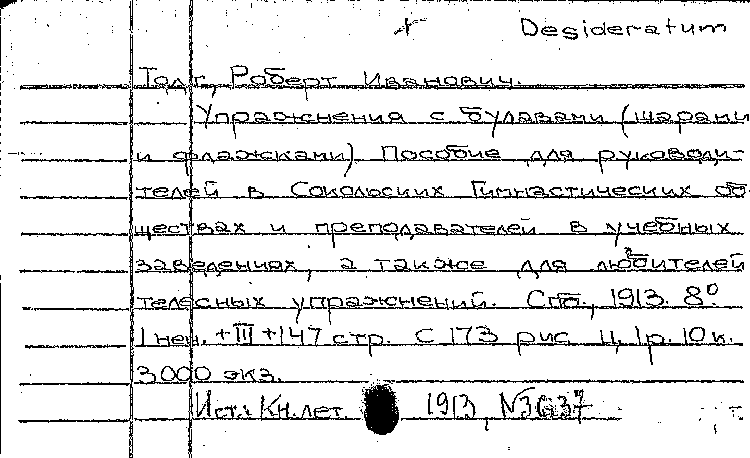 Desideratum
Тодт, Роберт Иванович.
Упражнения с булавами (шарами
и флажками) Пособие для руководи-
телей в Сокольских Гимнастических об-
ществах и преподавателей в учебных
заведениях, а также для любителей
телесных упражнений. Спб., 1913. 8°
1 нен. + III + 147 стр. С 173 рис. Ц. 1р. 10к.
3000 экз.
Ист: Кн. лет. 1913, №